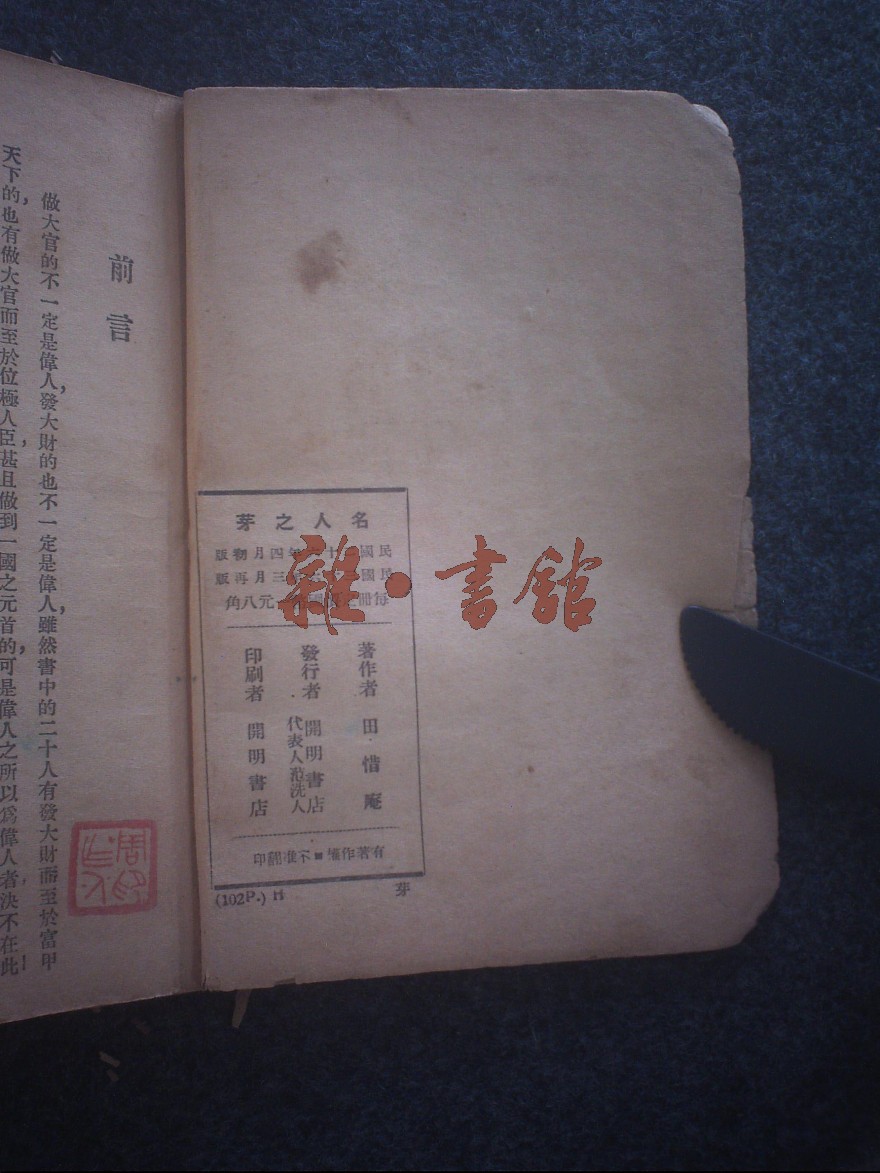 前言
做大官的不一定是偉人，發大財的也不一定是偉人，雖然書中的二十人有發大財而至於富甲
天下的，也有做大官而至於位極人臣，甚且做到一國之元首的，可是偉人之所以爲偉人者，決不在此
名人之芽
四月初版
三月再版
元八角
著作者 田惜庵
發行者 開明書店
代表人范洗人
印刷者 開明書店
有著作權■不准翻印
(102P.) H
芽
雜·書館